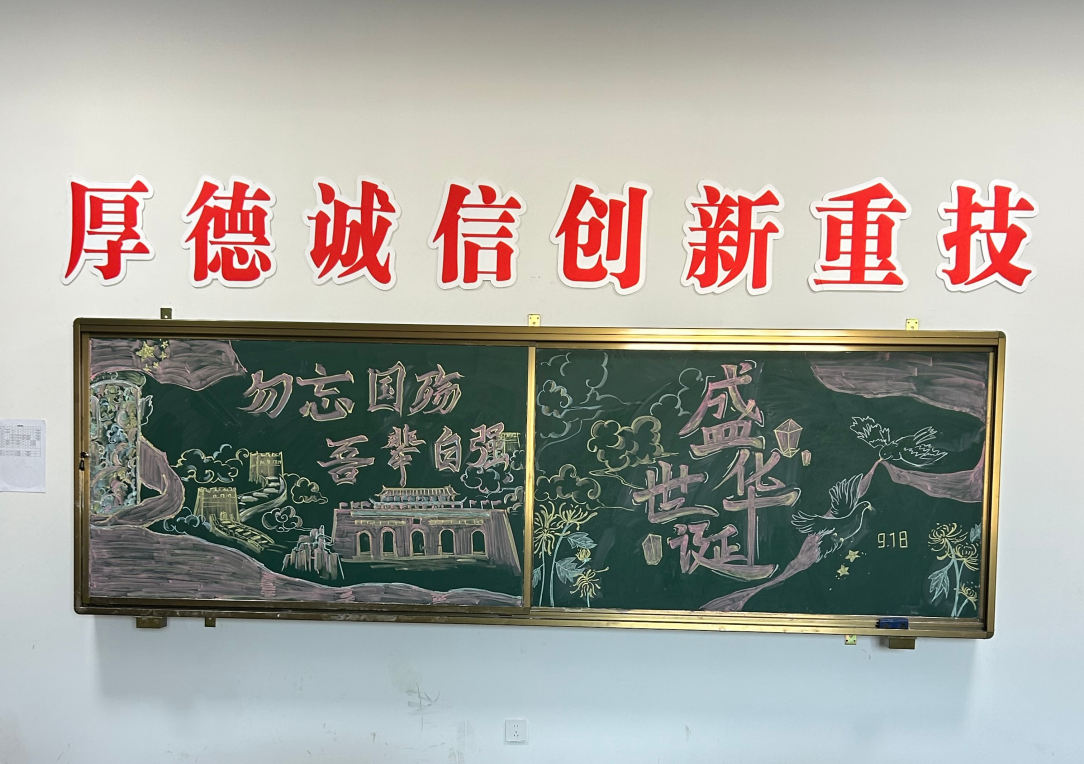 厚德诚信创新重技
勿忘国殇
吾辈自强
盛
世
华
诞
9.18